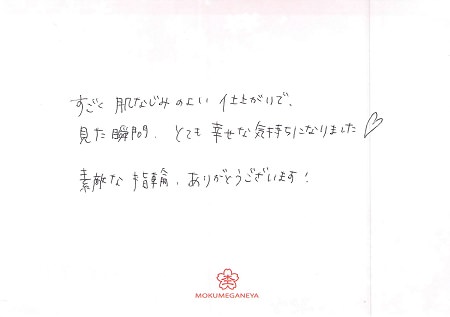 すごく 肌なじみのよい 仕上がりで、
見た瞬間、とても 幸せな気持ちになりました♡
素敵な 指輪、ありがとうございます!
MOKUMEGANEYA